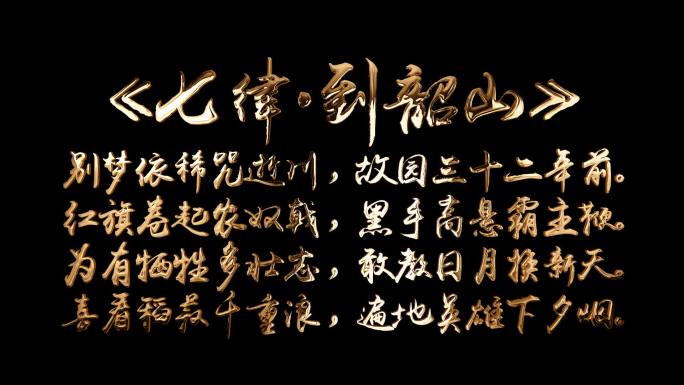 《七律·到韶山》
别梦依稀咒逝川，故园三十二年前。
红旗卷起农奴戟，黑手高悬霸主鞭。
为有牺牲多壮志，敢教日月换新天。
喜看稻菽千重浪，遍地英雄下夕烟。